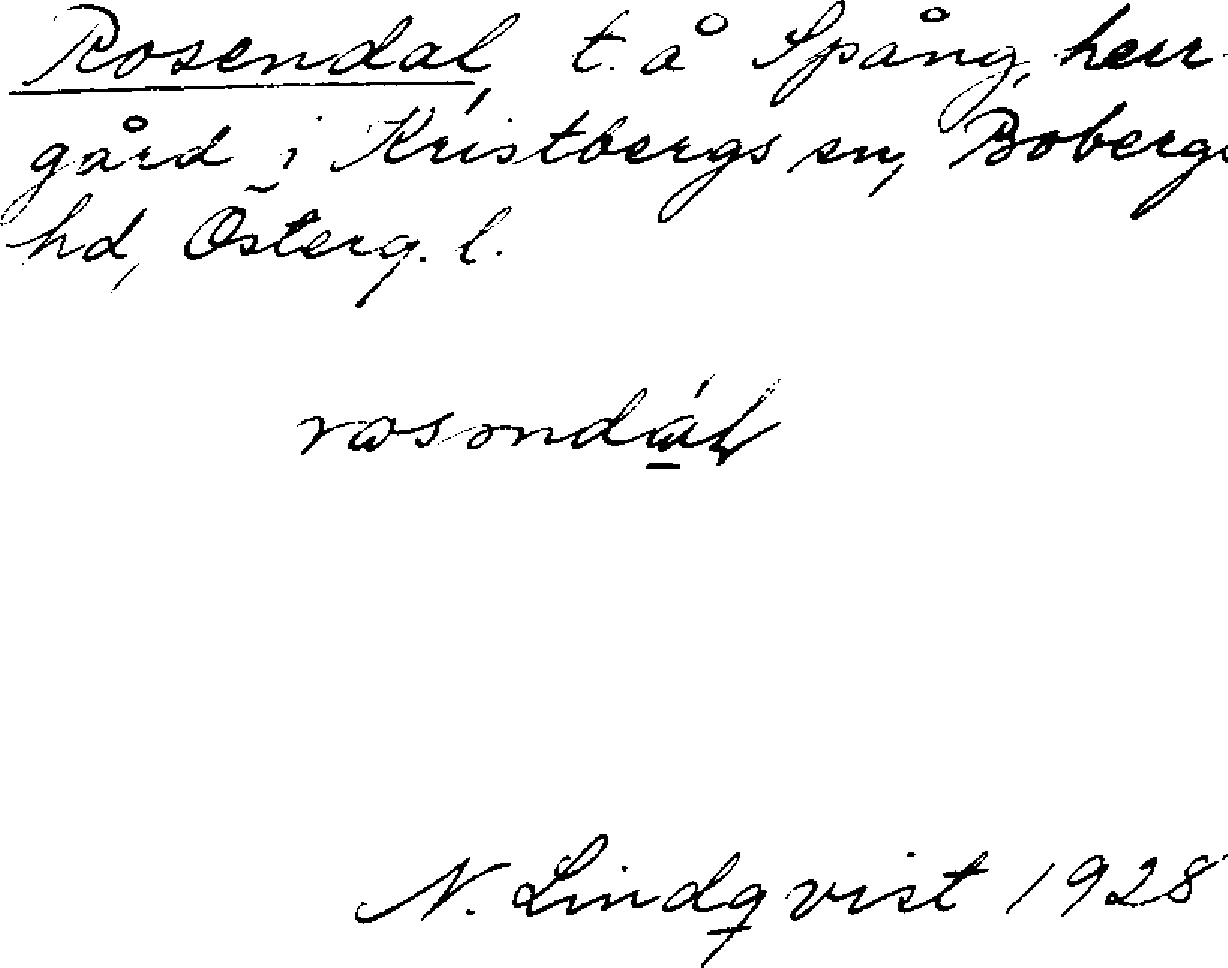 Rosendal, t. å Spång, herr-
gård i Kristbergs sn, Bobergs
hd, Österg. l.
rosəndál
N. Lindqvist 1928